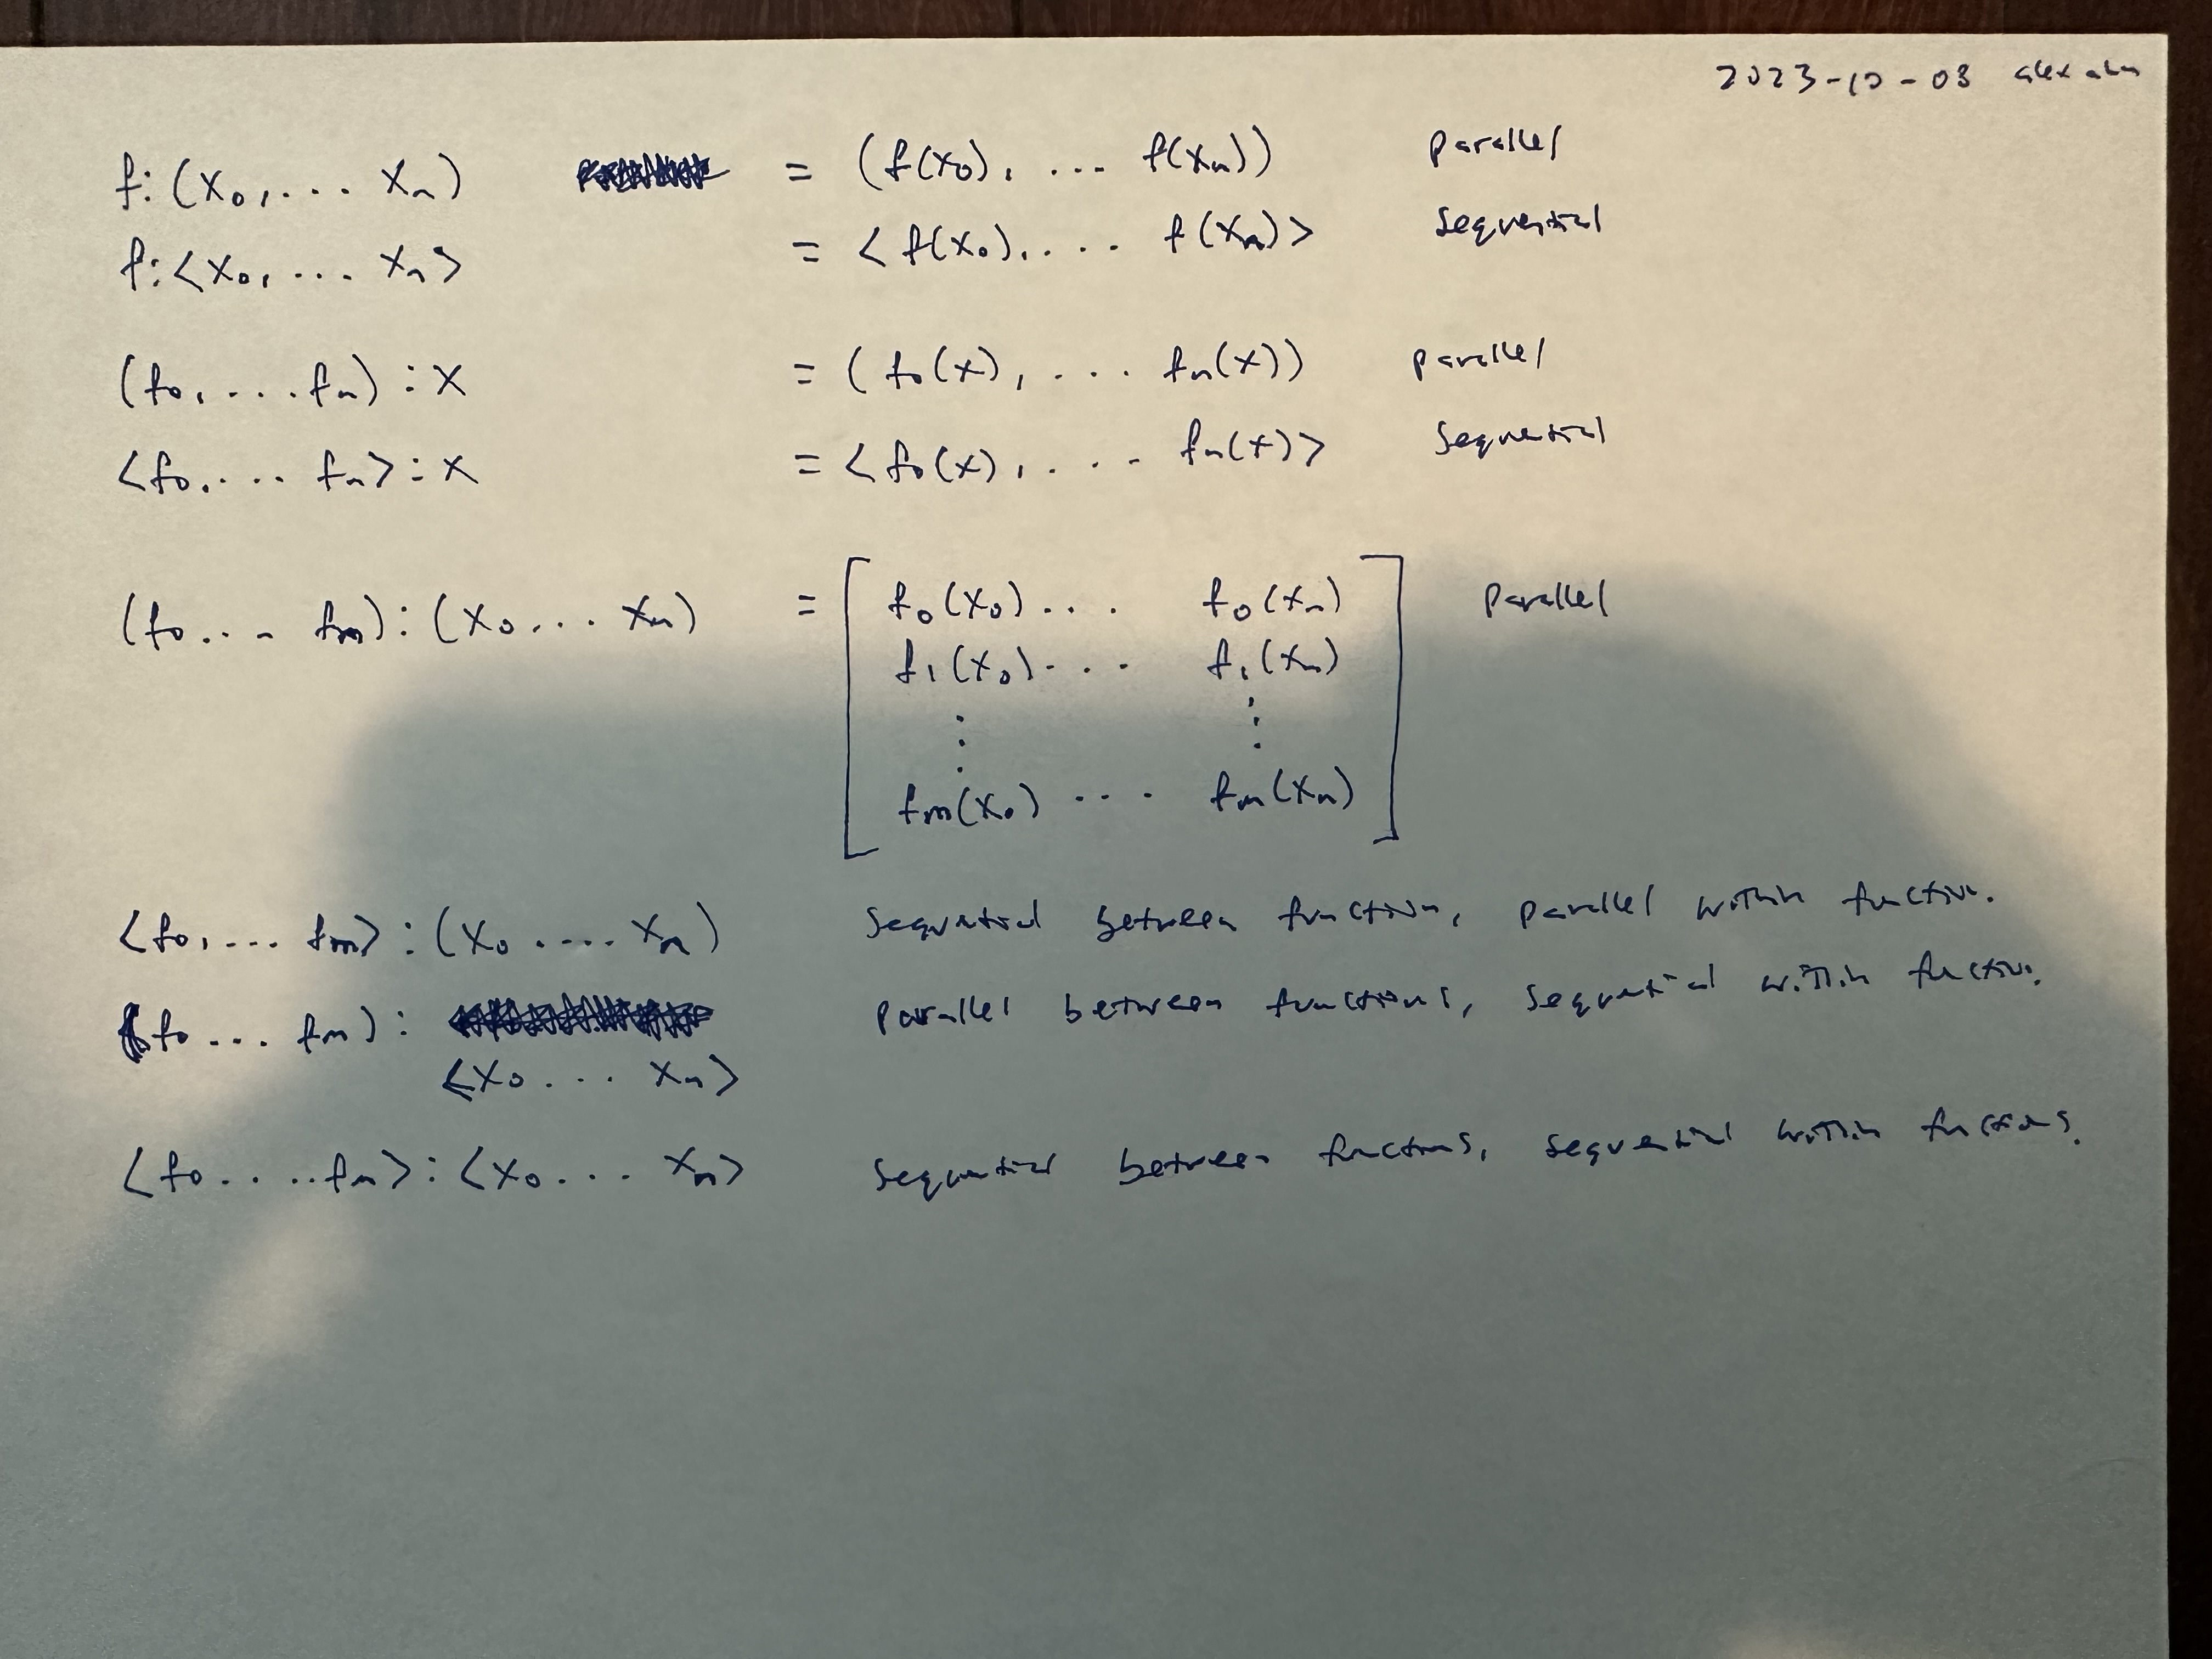 2023-10-03
f:(x₀,... xₙ) = (f(x₀), ... f(xₙ)) parallel
f:<x₀,... xₙ> = <f(x₀),... f(xₙ)> sequential
(f₀,...fₙ):x = (f₀(x), ... fₙ(x)) parallel
<f₀,... fₙ>:x = <f₀(x), ... fₙ(x)> sequential
(f₀... fₘ):(x₀... xₙ) = [ f₀(x₀)... f₀(xₙ) parallel
f₁(x₀)... f₁(xₙ)
⋮ ⋮
fₘ(x₀) ... fₘ(xₙ) ]
<f₀,... fₘ>:(x₀.... xₙ) sequential between function, parallel within function.
(f₀... fₘ): parallel between functions, sequential within function.
<x₀... xₙ>
<f₀.....fₙ>:<x₀... xₙ> sequential between functions, sequential within functions.